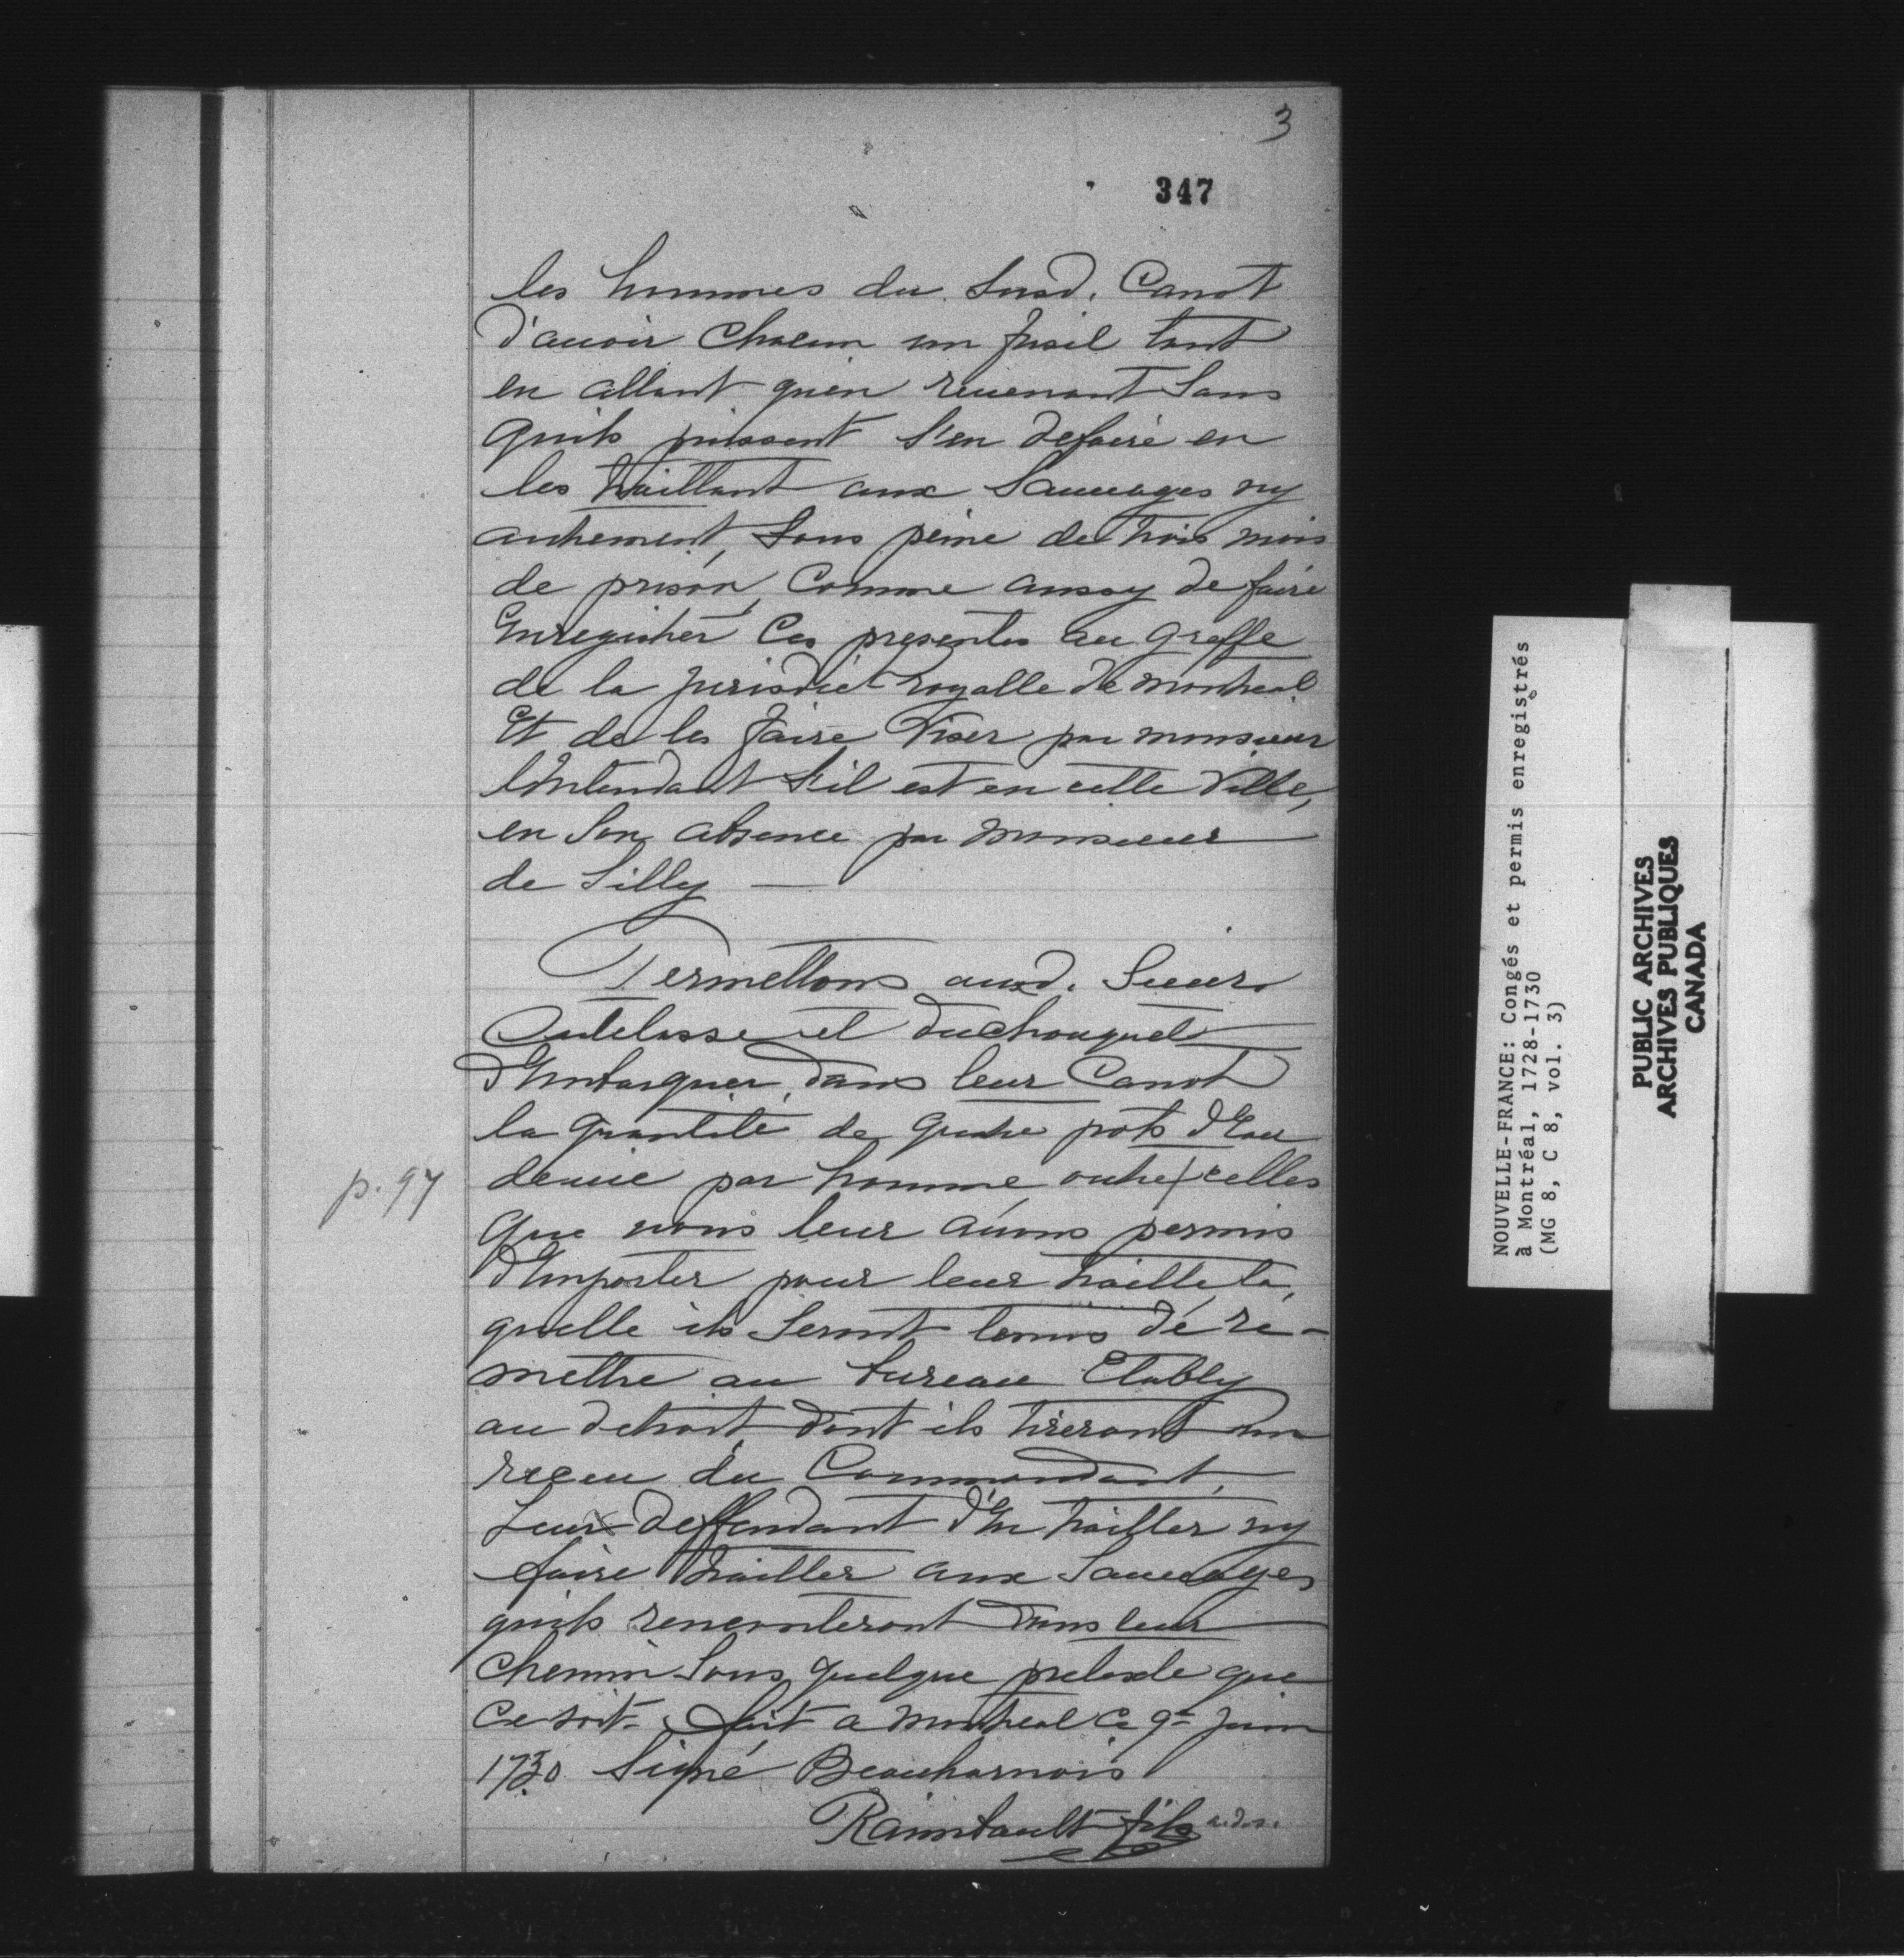 3
347
les hommes du Susd. Canot
d'auoir Chacun un fusil tant
en allant qu'en reuenant Sans
quils puissent S'en defaire en
les traittant aux Sauuages ny
autrement, Sous peine de trois mois
de prison, Comme aussy de faire
Enregistrer Ces presentes au greffe
de la Jurisdict royalle de montreal
Et de les faire Viser par monsieur
lIntendant S'il est en cette Ville,
en Son absence par Monsieur
de Silly —
Permettons auxd. Sieurs
Catelasse et duchouquet
d'Embarquer, dans leur Canot
la quantité de quatre pots d'Eau
deuie par homme outre celles
p. 97
Que nous leur auons permis
d'Emporter pour leur traitte, la,
quelle ils Seront tenus de re-
mettre au bureau Etably
au detroit, dont ils tireront un
receu du Commandant,
Leur deffendant d'En traitter ny
faire traitter aux Sauuages
quils rencontreront dans leur
Chemin Sous quelque pretexte que
Ce soit. fait a montreal Ce 9e Juin
1730 Signé Beauharnois
Raimbault fils a.d.s.
NOUVELLE-FRANCE: Congés et permis enregistrés
à Montréal, 1728-1730
(MG 8, C 8, vol. 3)
PUBLIC ARCHIVES
ARCHIVES PUBLIQUES
CANADA